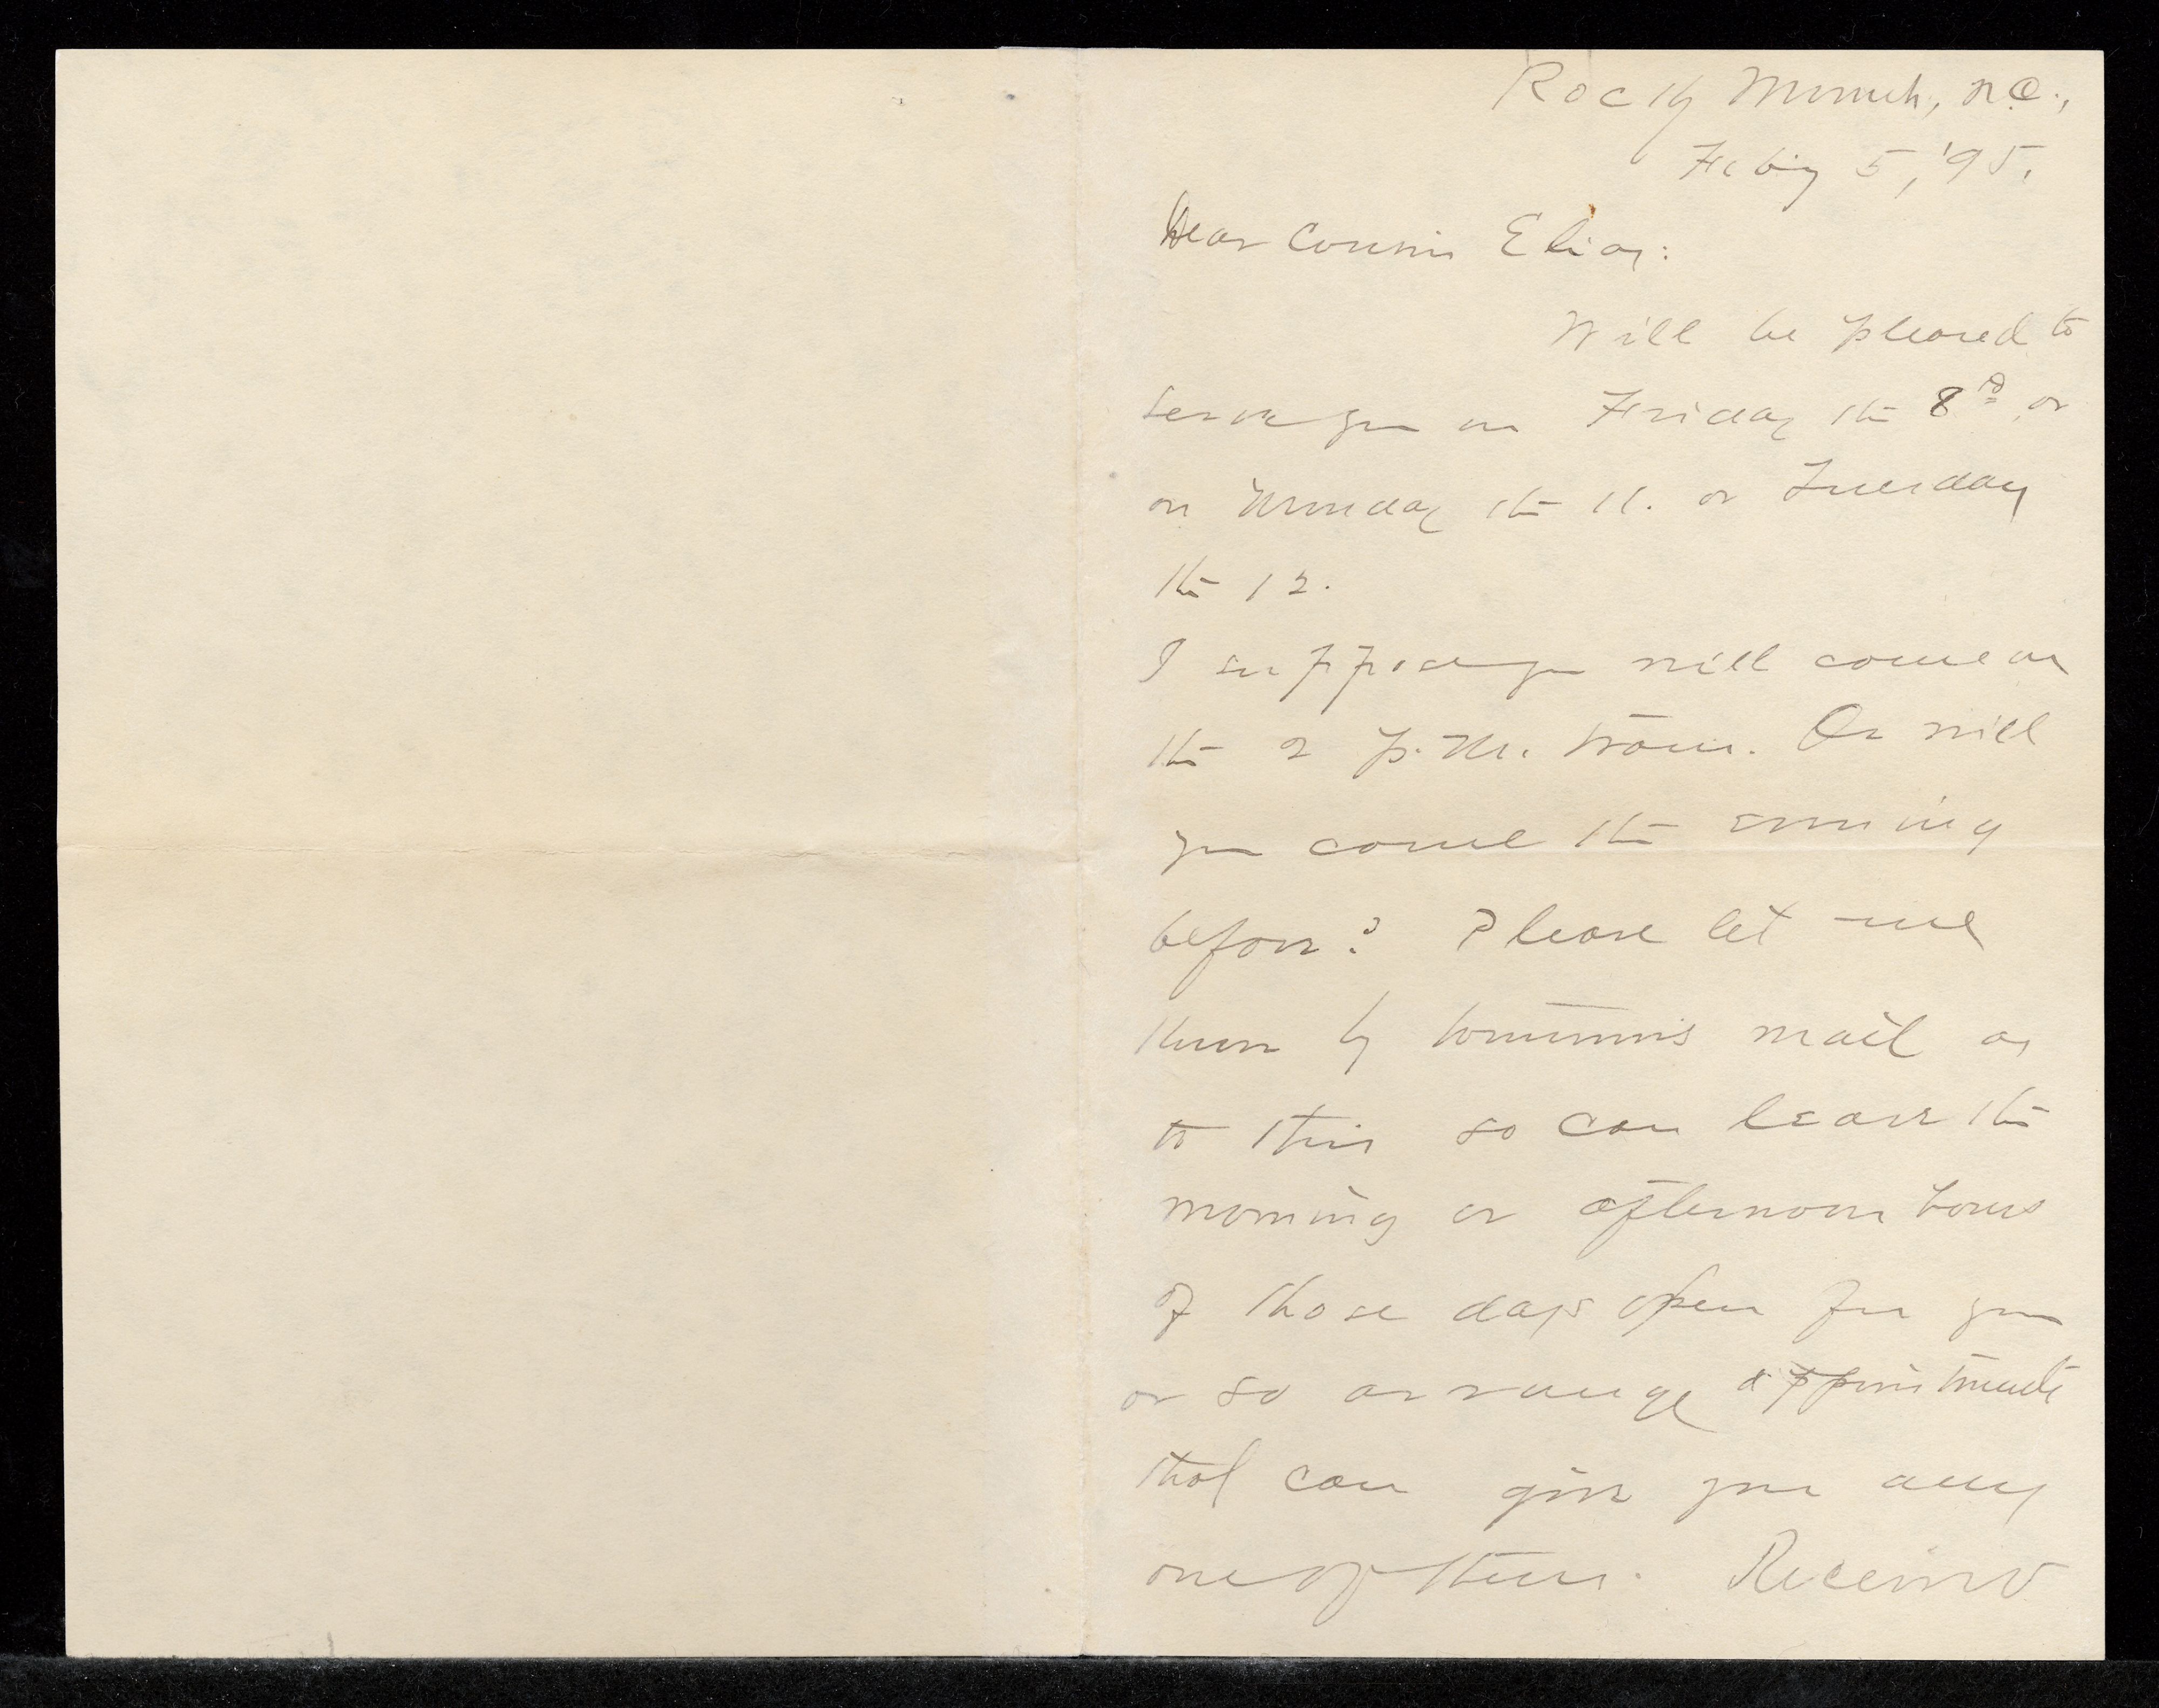 Rocky Mount, N.C.,
Feby 5, '95.
Dear Cousin Elias:
Will be pleased to
serve you on Friday the 8th or
on Monday the 11. or Tuesday
the 12.
I suppose you will come on
the 2 P.M. train. Or will
you come the evening
before? Please let me
know by tomorrow's mail as
to this so can leave the
morning or afternoon hours
of those days open for you
or so arrange appointments
that can give you any
one of them. Received